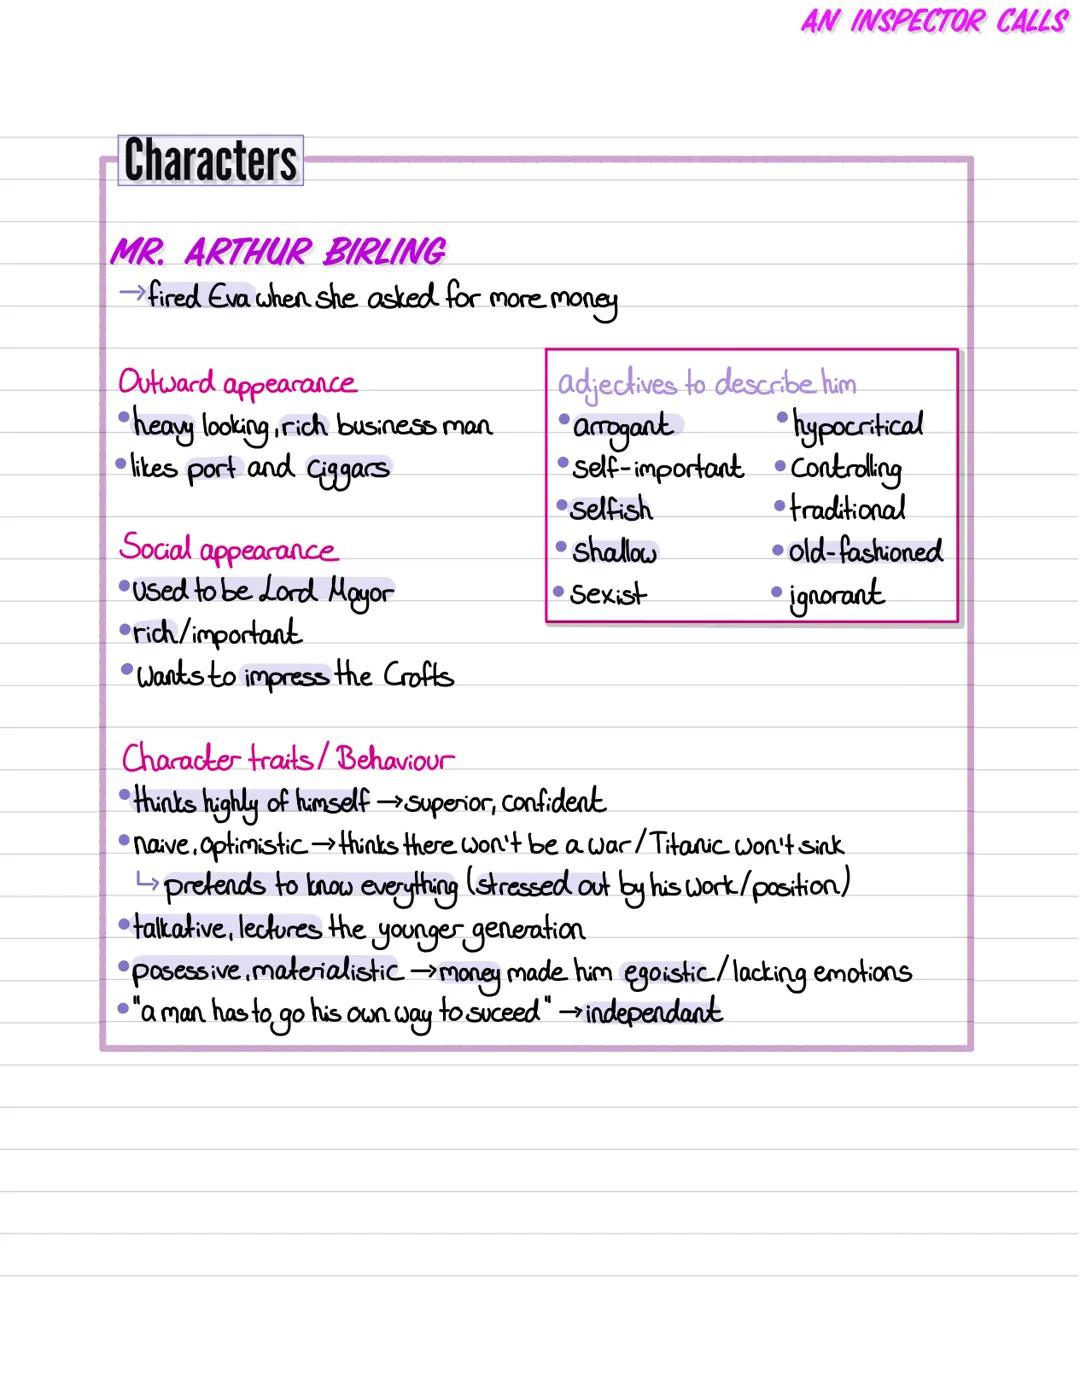 AN INSPECTOR CALLS
Characters
MR. ARTHUR BIRLING
→fired Eva when she asked for more money
Outward appearance
•heavy looking, rich business man
•likes port and ciggars
adjectives to describe him
•arrogant •hypocritical
•self-important •controlling
•selfish •traditional
•shallow •old-fashioned
•sexist •ignorant
Social appearance
•used to be Lord Mayor
•rich/important
•wants to impress the Crofts
Character traits/Behaviour
•thinks highly of himself →superior, confident
•naive, optimistic →thinks there won't be a war/Titanic won't sink
↳pretends to know everything (stressed out by his work/position)
•talkative, lectures the younger generation
•posessive, materialistic →money made him egoistic/lacking emotions
•"a man has to go his own way to suceed" →independant